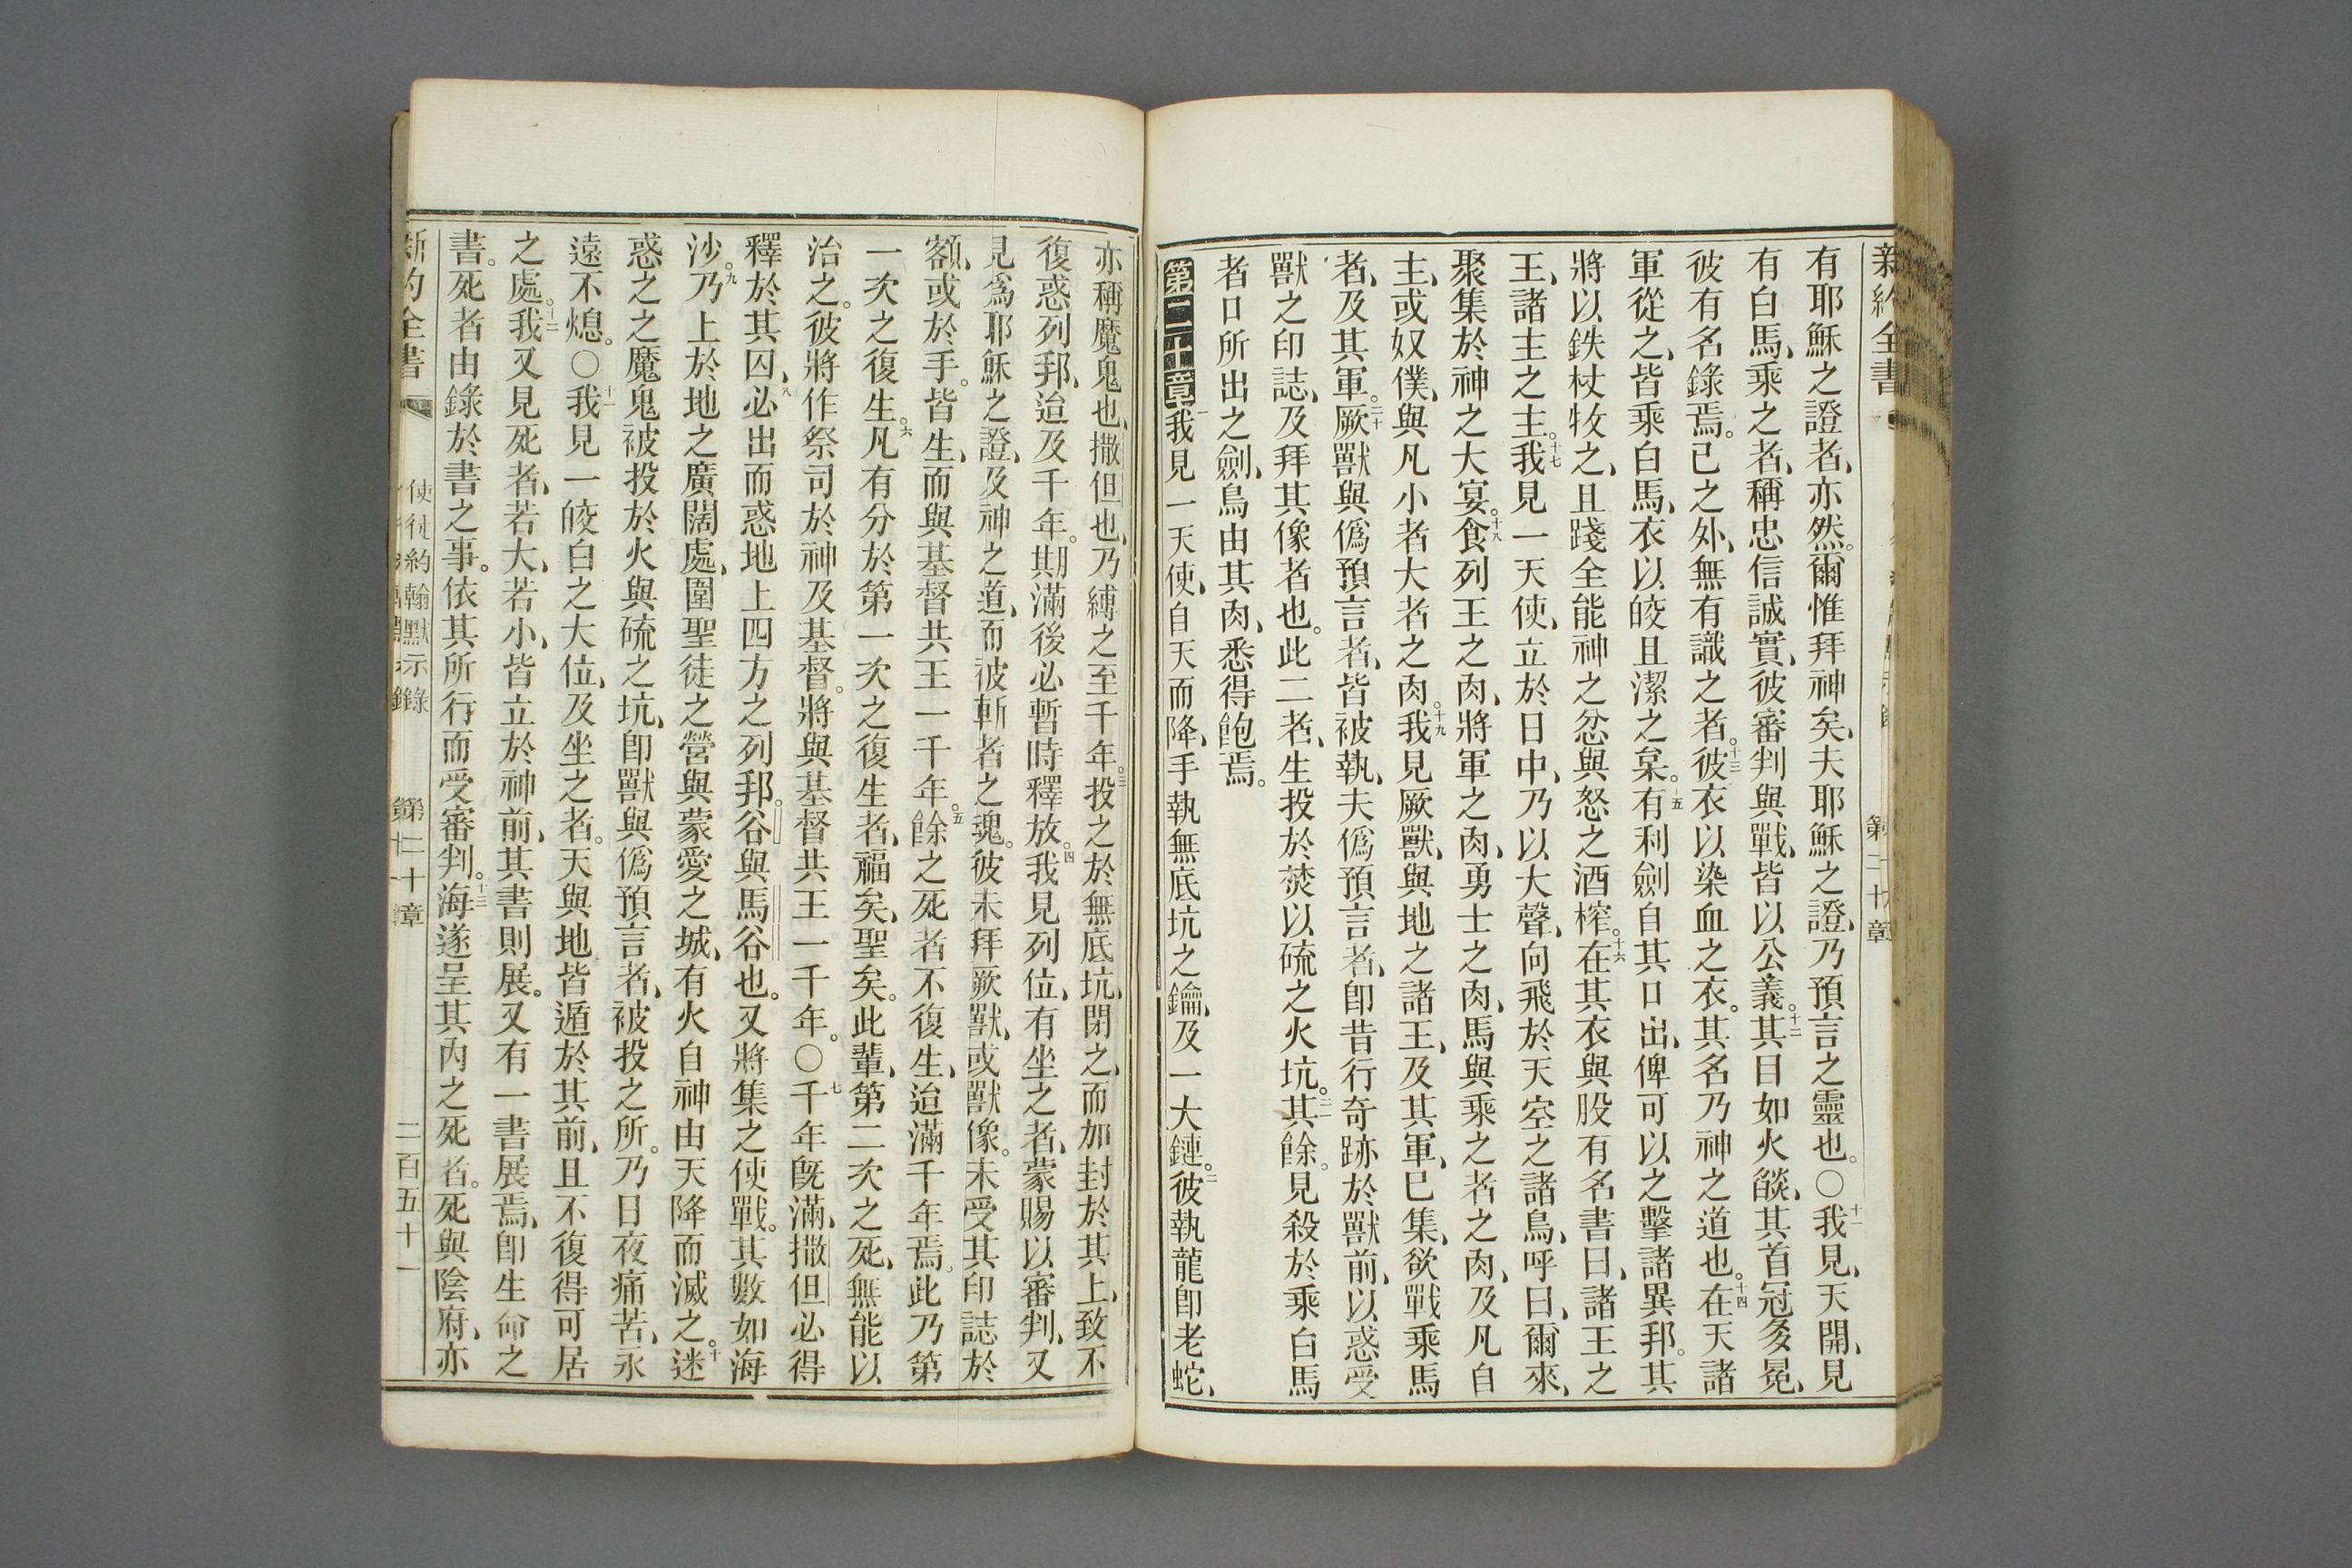 新約全書
第二十章
有耶穌之證者、亦然。爾惟拜神矣、夫耶穌之證、乃預言之靈也。○十一我見、天開、見
有白馬、乘之者、稱忠信誠實、彼審判與戰、皆以公義。十二其目如火燄、其首冠多冕、
彼有名錄焉。己之外、無有識之者。十三彼衣以染血之衣。其名乃神之道也。十四在天諸
軍從之、皆乘白馬、衣以皎且潔之枲。十五有利劍自其口出、俾可以之擊諸異邦。其
將以鉄杖牧之、且踐全能神之忿與怒之酒榨。十六在其衣與股有名書曰、諸王之
王、諸主之主。十七我見一天使、立於日中、乃以大聲、向飛於天空之諸鳥、呼曰、爾來、
聚集於神之大宴。十八食列王之肉、將軍之肉、勇士之肉、馬與乘之者之肉、及凡自
主、或奴僕、與凡小者大者之肉。十九我見厥獸、與地之諸王、及其軍、已集、欲戰乘馬
者、及其軍。二十厥獸與僞預言者、皆被執、夫僞預言者、卽昔行奇跡於獸前、以惑受
獸之印誌、及拜其像者也。此二者、生投於焚以硫之火坑。二一其餘。見殺於乘白馬
者口所出之劍、鳥由其肉、悉得飽焉。
第二十章一我見一天使、自天而降、手執無底坑之鑰、及一大鏈。二彼執龍卽老蛇、
亦稱魔鬼也、撒但也、乃縛之至千年。三投之於無底坑、閉之、而加封於其上、致不
復惑列邦、迨及千年。期滿後必暫時釋放。四我見列位、有坐之者、蒙賜以審判、又
見爲耶穌之證、及神之道、而彼斬者之魂。彼未拜厥獸、或獸像。未受其印誌於
額、或於手。皆生、而與基督共王一千年。五餘之死者不復生、迨滿千年焉。此乃第
一次之復生。六凡有分於第一次之復生者、福矣、聖矣。此輩、第二次之死、無能以
治之。彼將作祭司於神及基督。將與基督共王一千年。○七千年旣滿、撒但必得
釋於其囚、八必出而惑地上四方之列邦。谷與馬谷也。又將集之使戰。其數如海
沙。九乃上於地之廣闊處、圍聖徒之營與蒙愛之城、有火自神由天降而滅之。十迷
惑之之魔鬼被投於火與硫之坑、卽獸與僞預言者、被投之所。乃日夜痛苦、永
遠不熄。○十一我見一皎白之大位、及坐之者。天與地皆遁於其前、且不復得可居
之處。十二我又見死者、若大、若小、皆立於神前、其書則展。又有一書展焉、卽生命之
書。死者由錄於書之事。依其所行而受審判。十三海遂呈其內之死者。死與陰府、亦
新約全書 使徒約翰默示錄 第二十章 二百五十一